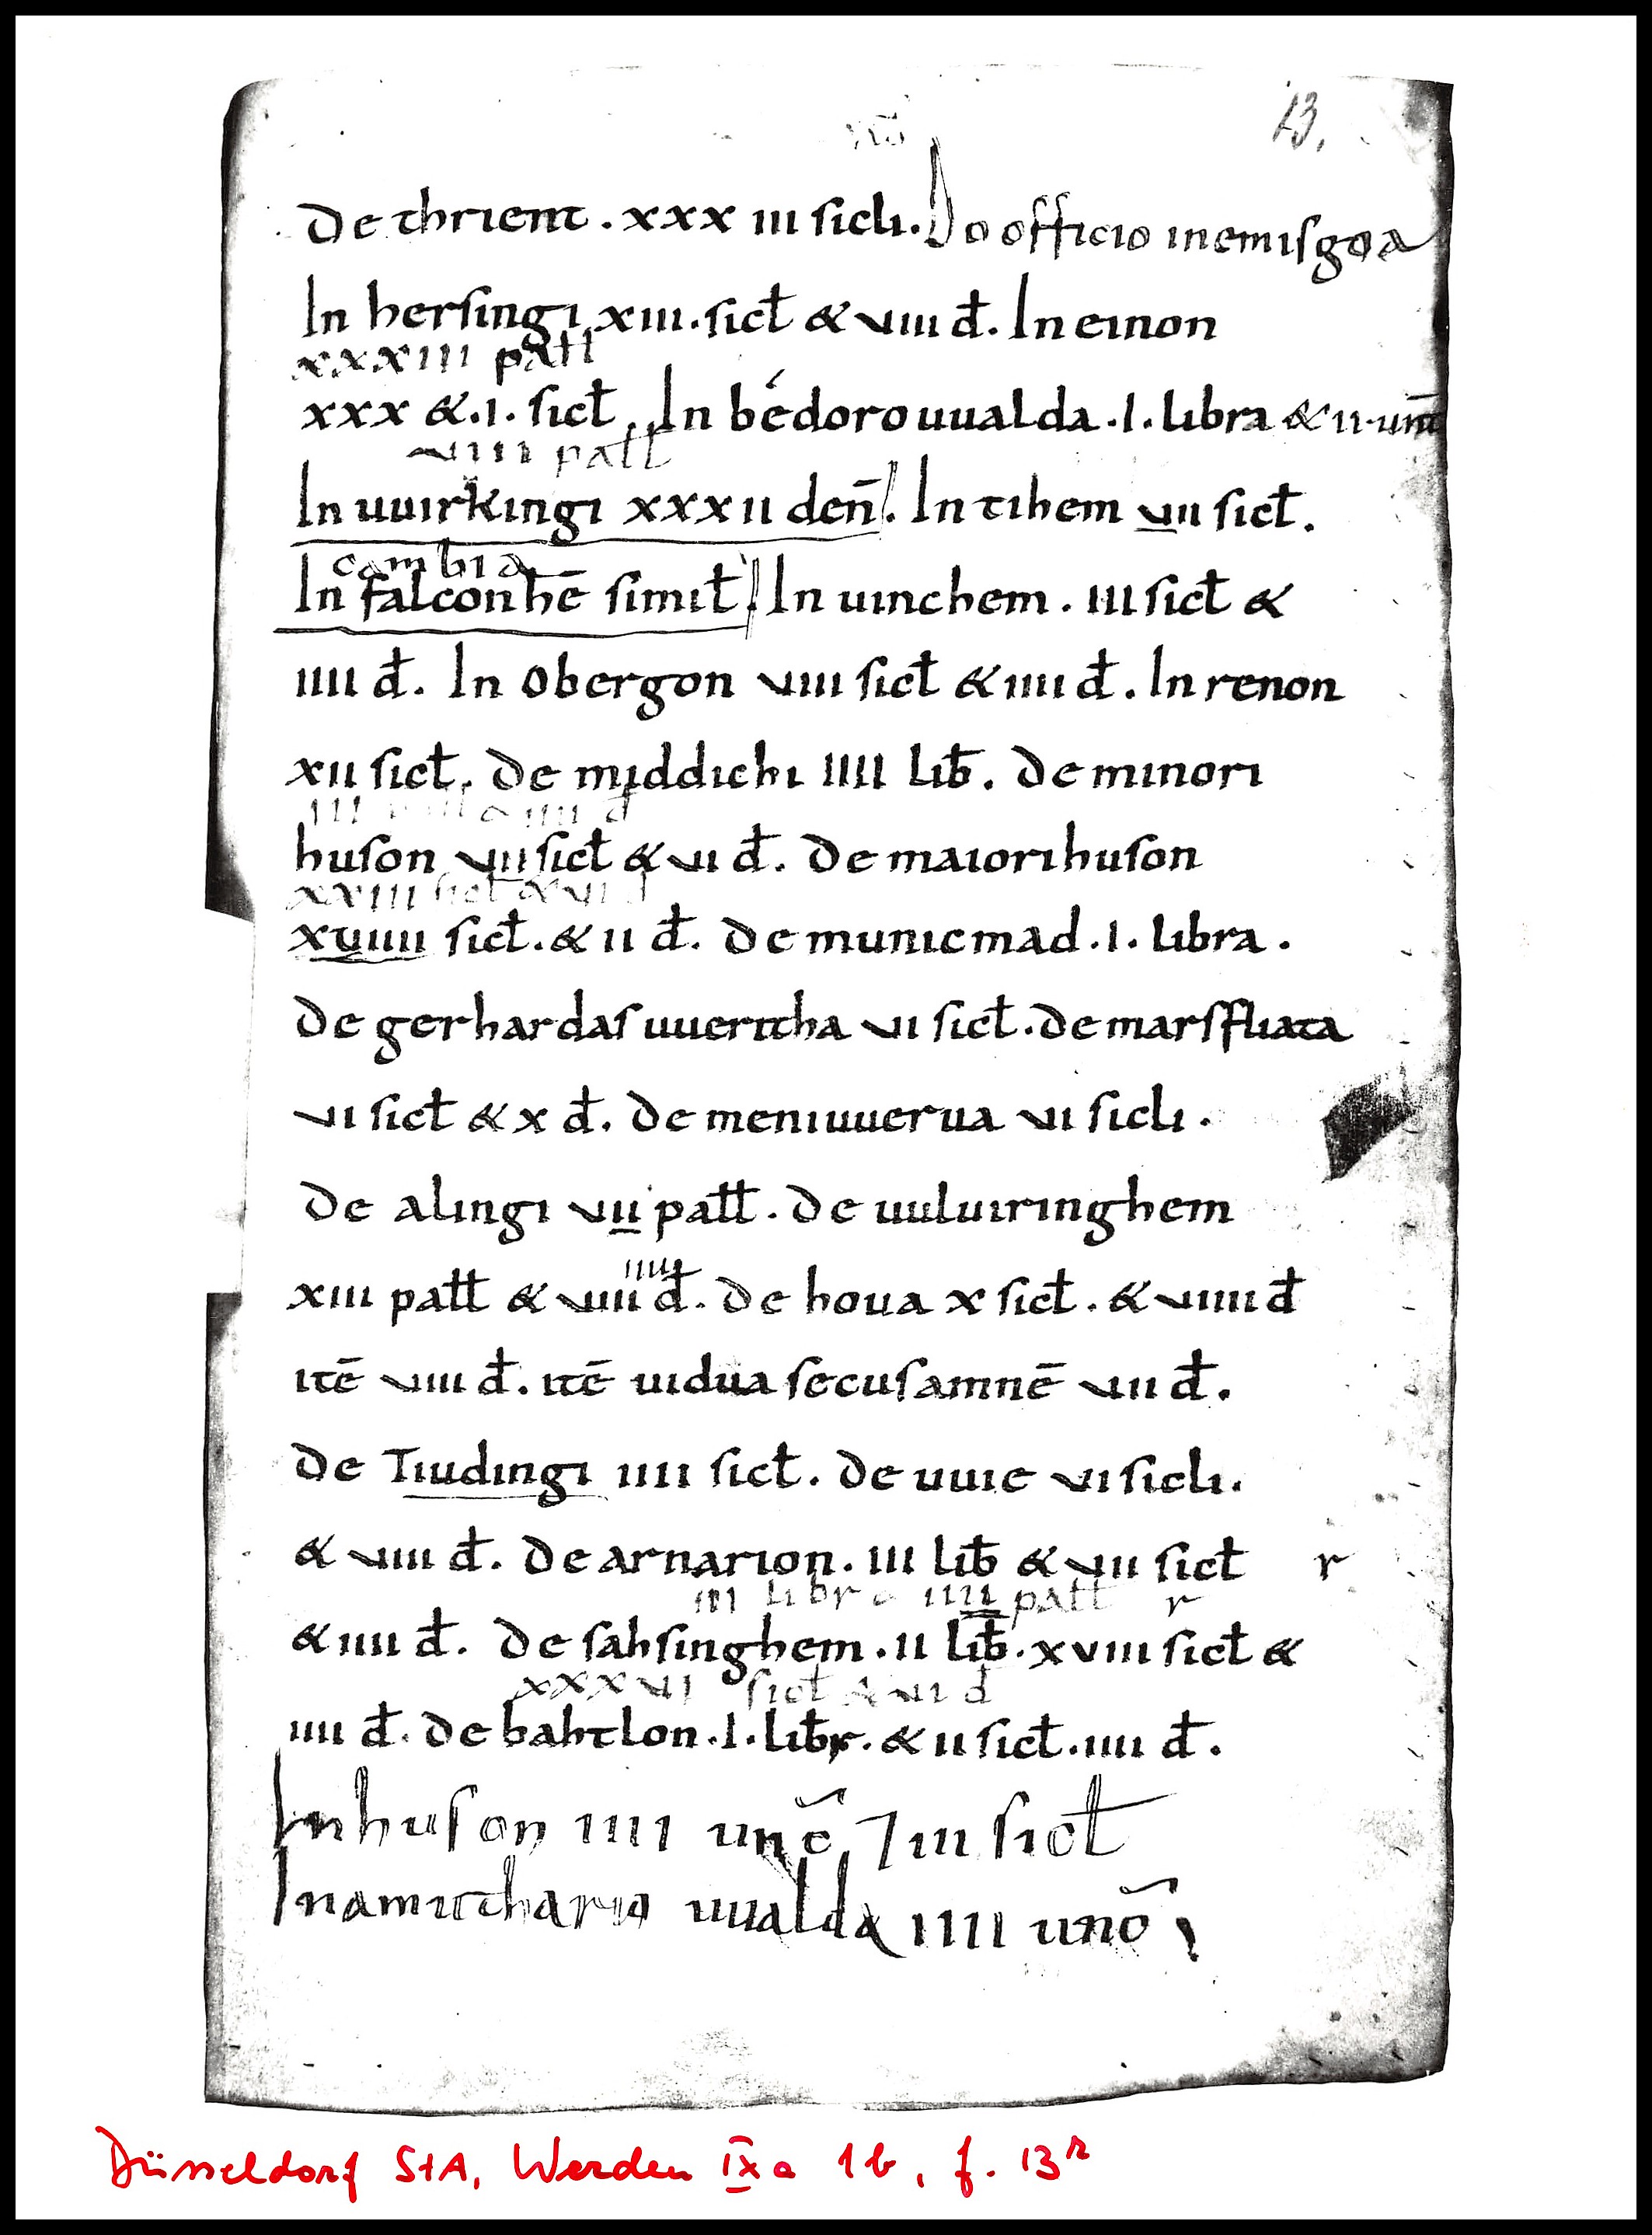 13.
De thrient . xxx iii sicli. Do officio inemisgoa
In hersingi xiii. sicł & viiii đ. In einon
xxxiii pałł
xxx &. i. sicł. In bédorouualda .i. libra & ii. unc̄
viiii pałł
In uuirkingi xxxii den̄. In tihem vii sicł.
cambia
In falconhē simił. In uinchem . iii sicł &
iiii đ. In obergon viii sicł & iiii đ. In renon
xii sicł. De middichi iiii lib̄. De minori
huson vii sicł & vi đ. De maiori huson
xxiii sicł & vi đ
xviiii sicł. & ii đ. De municmad .i. libra .
De gerhardas uuertha vi sicł. De marsfliata
vi sicł & x đ. De meniuuerua vi sicli .
De alingi vii pałł . De uuluiringhem
iiii
xiii pałł & viiii đ. De houa x sicł . & viiii đ
itē viiii đ. itē uidua secus amnē vii đ.
De Tiudingi iiii sicł . De uuie vi sicli.
& viiii đ. De arnarion. iii lib̄ & vii sicł r
iii libr & iiii pałł r
& iiii đ. De sahsinghem . ii lib̄. xviii sicł &
xxxvi sicł & vi đ
iiii đ. De bahtlon .i. lib̄r. & ii sicł. iiii đ.
In huson iiii unc̄ ⁊ iii sicł
In amuthario uualda iiii unc̄
Düsseldorf StA, Werden IX a 1 b, f. 13ʳ